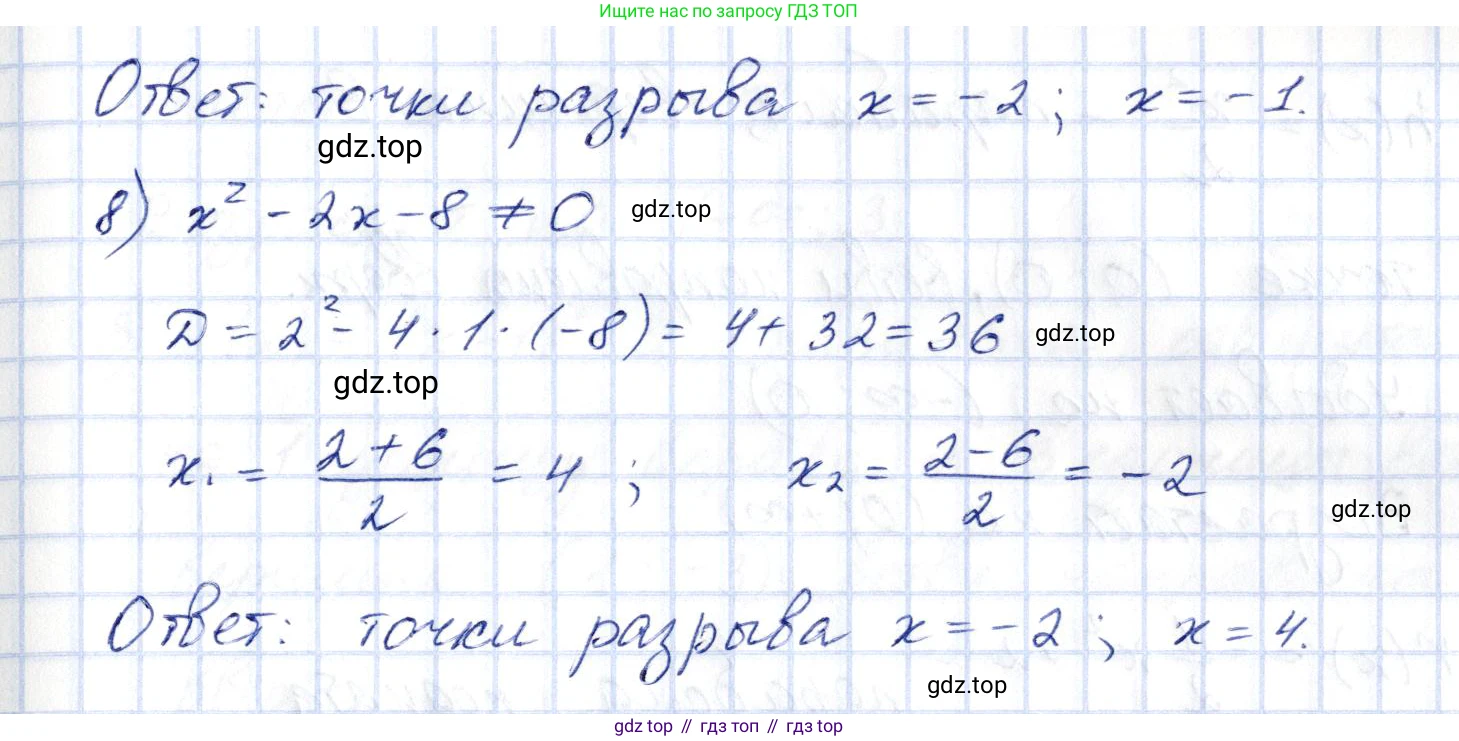 Ищите нас по запросу ГДЗ ТОП
Ответ: точки разрыва x = -2; x = -1.
gdz.top
8) x² - 2x - 8 ≠ 0 gdz.top
D = 2² - 4 · 1 · (-8) = 4 + 32 = 36 gdz.top
gdz.top
x₁ = (2+6)/2 = 4; x₂ = (2-6)/2 = -2
gdz.top
Ответ: точки разрыва x = -2; x = 4.
gdz.top
gdz top // гдз топ // гдз top